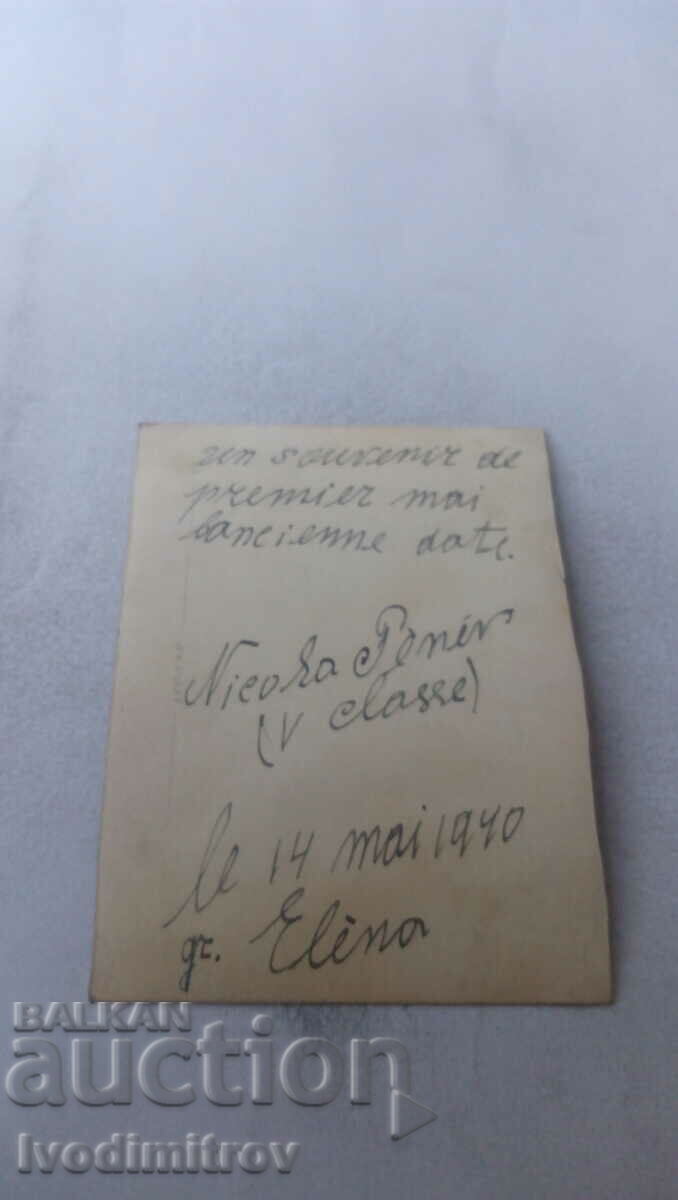 un souvenir de
premier mai
l'ancienne date.
Nicola Penév
(V classe)
le 14 mai 1940
gr. Eléna
BALKAN
auction
Ivodimitrov